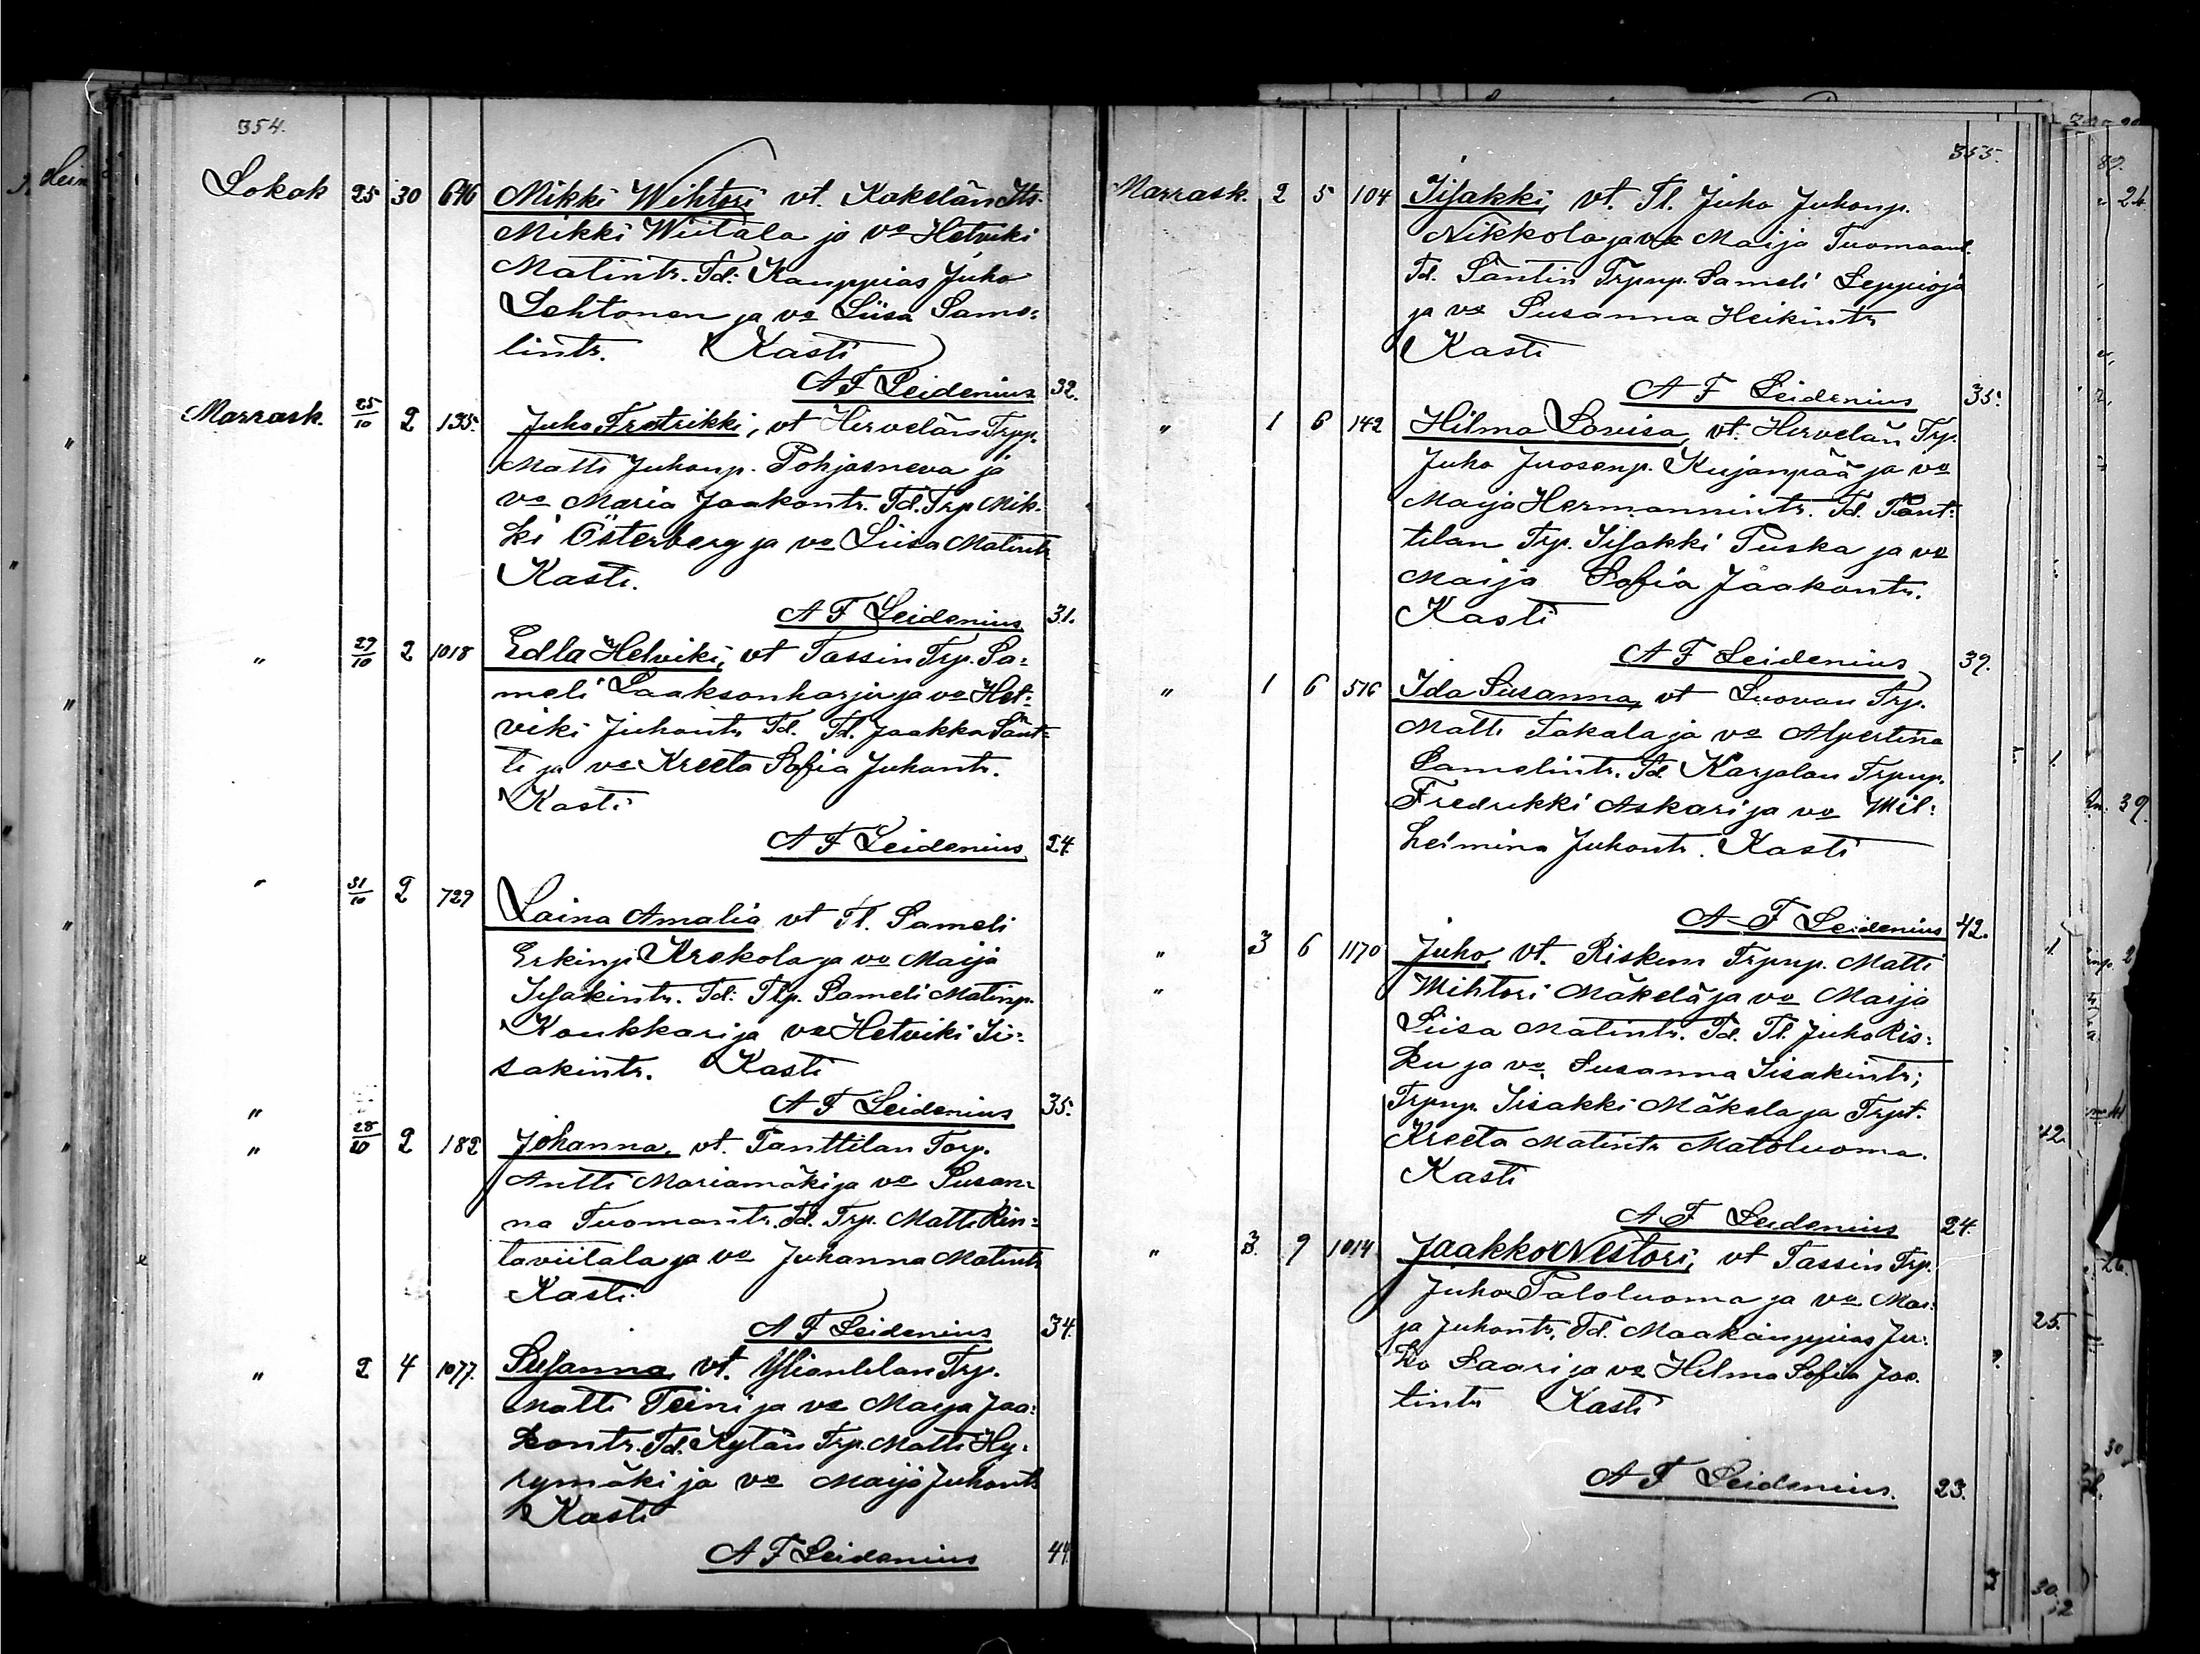 354.
Lokak 25 30 646 Mikki Wihtori vt. Kokelän Its.
Mikki Wiitala ja vo Hetviki
Matintr. Td: Kauppias Juho
Lehtonen ja vo Liisa Same=
lintr. Kasti
A F Leidenius 32.
Marrask. 25/10 2 135. Juho Fretrikki, vt Hirvelän Trpp.
Matti Juhonp. Pohjasneva ja
vo Maria Jaakontr. Td. Trp Mik-
ki Österberg ja vo Liisa Matintr
Kasti.
A F Leidenius 31.
" 27/10 2 1018 Edla Helviki, vt Tassin Trp. Sa=
meli Laaksonharju ja vo Het=
viki Juhontr Td. Tl. Jaakko Sänt=
ti ja vo Kreeta Sofia Juhontr.
Kasti
A F Leidenius 24.
" 31/10 2 729 Laina Amalia vt Tl. Sameli
Erkinp. Krekola ja vo Maija
Iisakintr. Td: Tlp. Sameli Matinp.
Koukkari ja vo Hetviki Ii=
sakintr. Kasti
" A F Leidenius 35.
" 28/10 2 182 Johanna, vt. Panttilan Torp.
Antti Mariamäki ja vo Susan=
na Tuomantr. Td. Trp. Matti Rin=
taviitala ja vo Juhanna Matintr
Kasti.
A F Leidenius 34.
" 2 4 1077. Susanna, vt. Yliantilan Trp.
Matti Teini ja vo Maija Jaa=
kontr. Td. Kytän Trp. Matti Hy=
rymäki ja vo Maija Juhontr
Kasti
A F Leidenius 44.
355.
Marrask. 2 5 104 Iisakki, vt. Tl. Juho Juhonp.
Nikkola ja vo Maija Tuomaant.
Td. Säntin Trpnp. Sameli Leppioja
ja vo Susanna Heikintr
Kasti
A F Leidenius 35.
" 1 6 142 Hilma Lovisa, vt. Hirvelän Trp.
Juho Juosenp. Kujanpää ja vo
Maija Hermannintr. Td. Pant=
tilan Trp. Iisakki Puska ja vo
Maija Sofia Jaakontr.
Kasti
A F Leidenius 39.
" 1 6 516 Ida Susanna, vt Luovan Trp.
Matti Takala ja vo Alpertina
Samelintr. Td. Karjalan Trpnp.
Fredrikki Askari ja vo Wil=
heimina Juhontr. Kasti
A F Leidenius 42.
" 3 6 1170 Juho, vt. Riskun Trpnp. Matti
" Wihtori Mäkelä ja vo Maija
Liisa Matintr. Td. Tl. Juho Ris=
ku ja vo. Susanna Iisakintr;
Trpnp. Iisakki Mäkela ja Trpt.
Kreeta Matintr Matoluoma.
Kasti
A F Leidenius 24.
" 3. 9 1014 Jaakko Nestori, vt Tassin Trp.
Juho Paloluoma ja vo Mai=
ja Juhontr, Td. Maakauppias Ju=
ho Saari ja vo Hilma Sofia Joo.
tintr Kasti
A F Leidenius. 23.